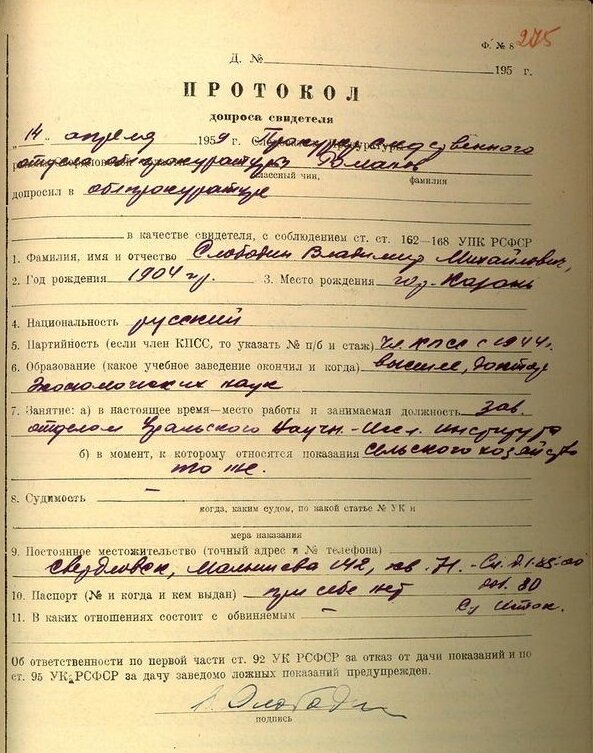 Ф. № 8 275
Д. № 195 г.
ПРОТОКОЛ
допроса свидетеля
„14„ апреля 1959 г. Прокурор следственного
отдела облпрокуратуры Романов
классный чин, фамилия
допросил в облпрокуратуре
в качестве свидетеля, с соблюдением ст. ст. 162—168 УПК РСФСР
1. Фамилия, имя и отчество Слободин Владимир Михайлович,
2. Год рождения 1904 г. 3. Место рождения гор. Казань
4. Национальность русский
5. Партийность (если член КПСС, то указать № п/б и стаж) чл. КПСС с 1944г.
6. Образование (какое учебное заведение окончил и когда) высшее, доктор
экономических наук
7. Занятие: а) в настоящее время—место работы и занимаемая должность зав.
отделом Уральского Научн.-Иссл. института
б) в момент, к которому относятся показания сельского хозяйства
то же.
8. Судимость —
когда, каким судом, по какой статье № УК и
мера наказания
9. Постоянное местожительство (точный адрес и № телефона)
Свердловск, Малышева 142, кв. 71. -
10. Паспорт (№ и когда и кем выдан) при себе нет доб. 80
11. В каких отношениях состоит с обвиняемым —
Об ответственности по первой части ст. 92 УК РСФСР за отказ от дачи показаний и по
ст. 95 УК РСФСР за дачу заведомо ложных показаний предупрежден.
Слободин
подпись